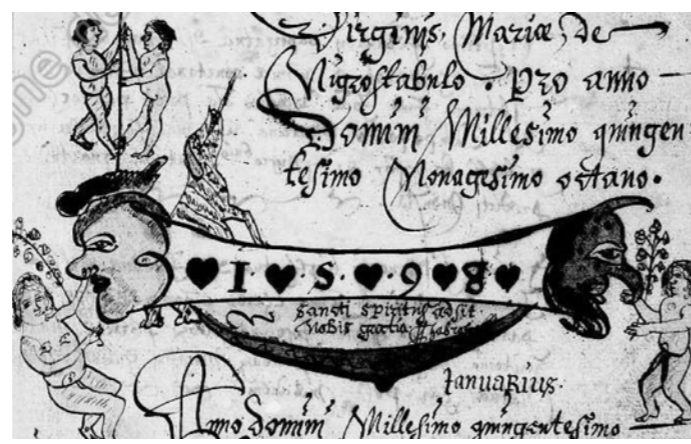 Virginis, Mariæ, de
Nigrostabulo. Pro anno
Domini Millesimo quingen
tesimo Nonagesimo octavo.
I · S · 9 8
Sancti Spiritus adsit
Nobis gratia
IanuaRius.
Anno Domini Millesimo quingentesimo